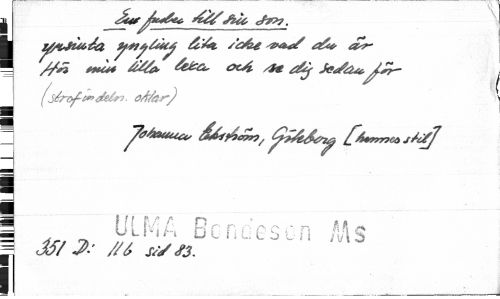 En fader till sin son.
yrsinta yngling lita icke vad du är
Hör min lilla lexa och se dig sedan för
(strofindeln. oklar)
Johanna Ekström, Göteborg [hennes stil]
ULMA Bondeson Ms
351 D: 116 sid 83.